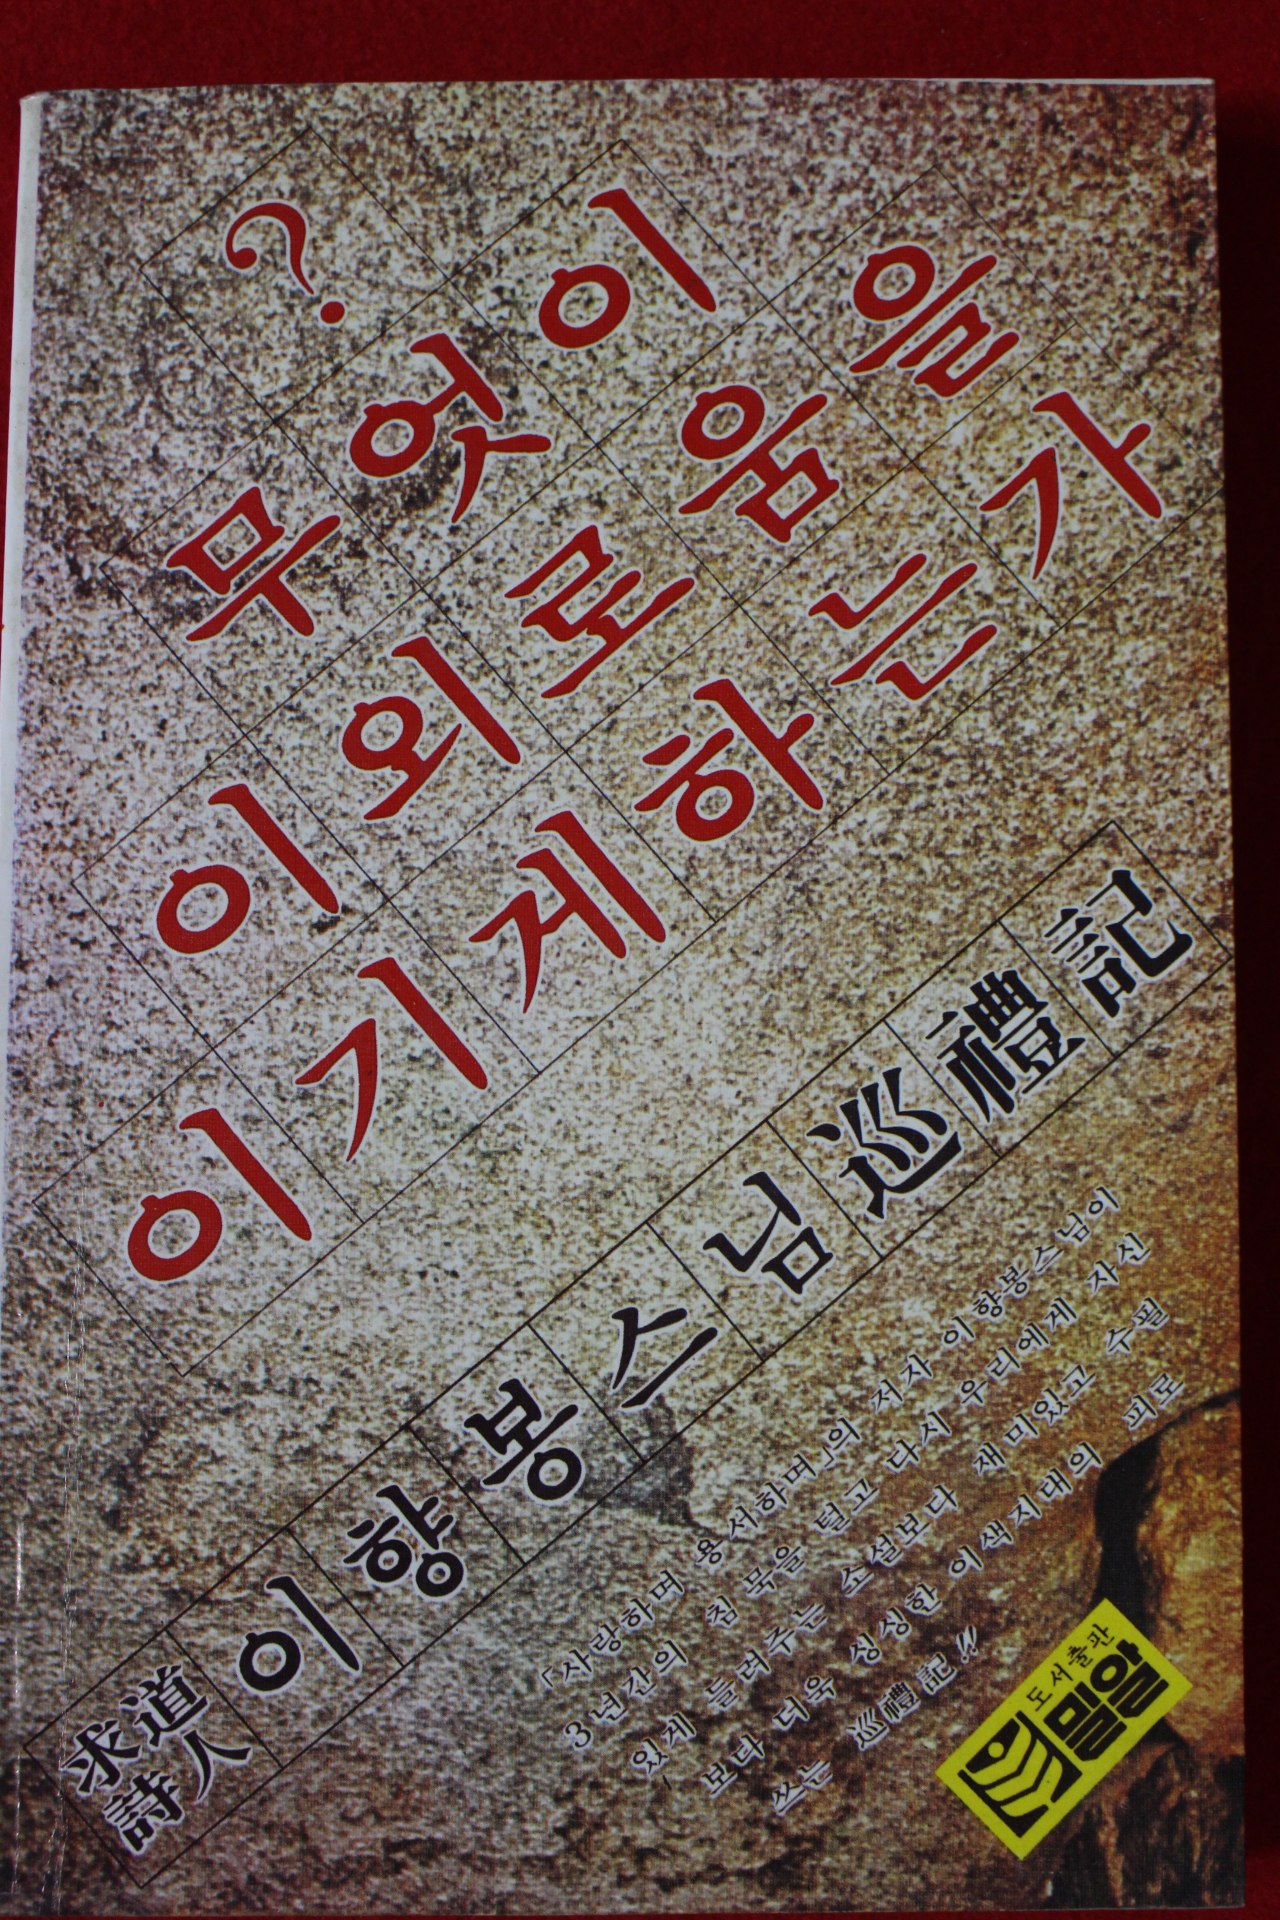 ?
무엇이
이 외로움을
이기게 하는가
求道
詩人
이향봉스님 巡禮記
「사랑하며 용서하며」의 저자 이향봉스님이
3년간의 침묵을 털고 다시 우리에게 자신
있게 들려주는 소설보다 재미있고 수필
보다 더욱 싱싱한 이색지대의 피로
쓰는 巡禮記!!
도서출판
밀알